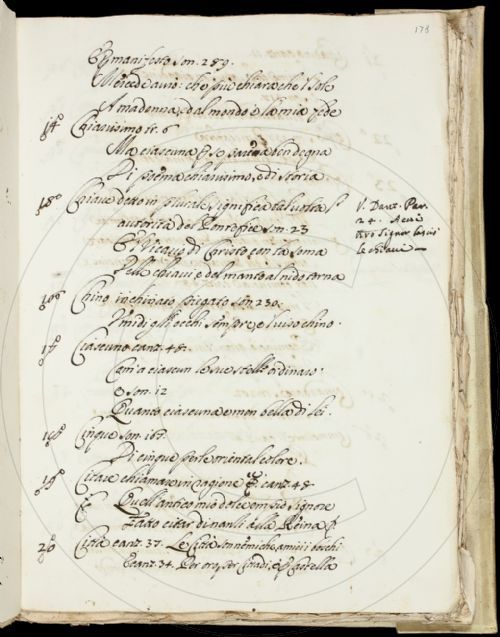 178
E manifesto son. 289.
Mercede avio. che piu chiara che 'l sole
A madonna, et al mondo è la mia fede
14º Chiarissimo tr. 6
Ma ciascuna per se saria ben degna
Di poema chiarissimo, e d'istoria
18º Chiave detto in plurale significa tal volta l'
autorità del Pontefice son. 23
E 'l Vicario di Christo con la soma
Delle chiavi e del manto al nido torna
V. Dant. Par.
24.
Signor
le chiavi
Chino inchinato piegato son 230.
Umidi gli occhi sempre, e 'l viso chino.
17 Ciascuno canz. 48.
Com'a ciascun le sue stelle ordinaro.
son. 12
Quanto ciascuna è men bella di lei.
Cinque son. 167.
Di cinque perle oriental colore.
19º Citare chiamare in ragione canz. 48
Quell'antico mio dolce empio Signore
Fatto citar dinanzi alla Reina
20 Città canz. 37. Le Città son nemiche, amici i boschi
canz. 34. Castella